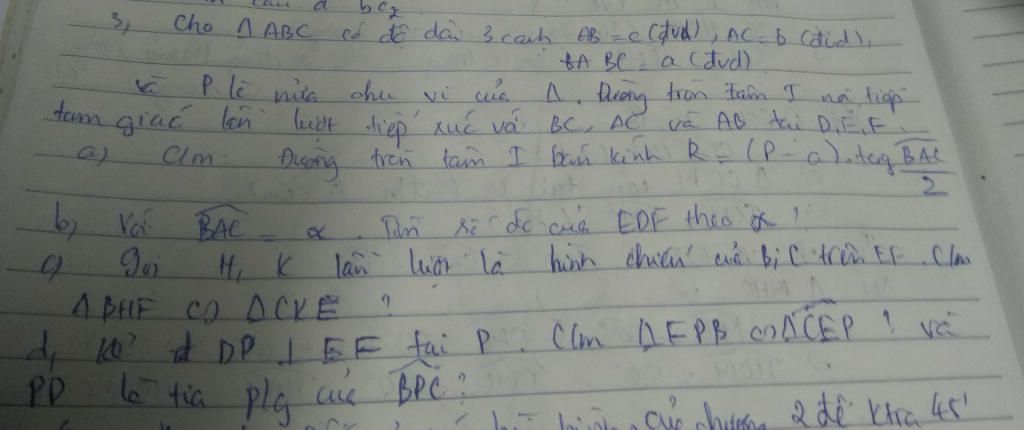 3, Cho Δ ABC có độ dài 3 cạnh AB = c (đvđ), AC = b (đvd),
BC = a (đvd)
và P là nửa chu vi của Δ. Đường tròn tâm I nội tiếp
tam giác lần lượt tiếp xúc với BC, AC và AB tại D, E, F.
a) C/m: Đường tròn tâm I bán kính R = (P - a). teg BAC/2
b, Với BAC = α. Tìm số đo của EDF theo α ?
c) gọi H, K lần lượt là hình chiếu của B, C trên EF. C/m
Δ BHF ∽ Δ CKE ?
d, kẻ DP ⊥ EF tại P. C/m Δ FPB ∽ Δ CEP ? và
PD là tia p/g của BPC ?
chương 2 đề ktra 45'